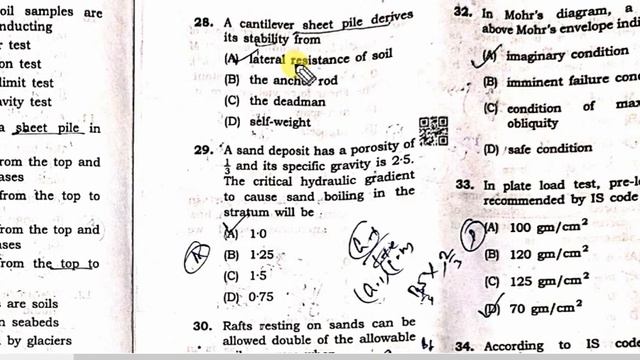 oil samples are
nducting
r test
on test
limit test
avity test
a sheet pile in
from the top and
ases
from the top to
from the top and
ses
from the top to
s are soils
n seabeds
by glaciers
28. A cantilever sheet pile derives
its stability from
(A) lateral resistance of soil
(B) the anchor rod
(C) the deadman
(D) self-weight
29. A sand deposit has a porosity of
1/3 and its specific gravity is 2·5.
The critical hydraulic gradient
to cause sand boiling in the
stratum will be
(A) 1·0
(B) 1·25
(C) 1·5
(D) 0·75
30. Rafts resting on sands can be
allowed double of the allowable
32. In Mohr's diagram, a
above Mohr's envelope indi
(A) imaginary condition
(B) imminent failure con
(C) condition of max
obliquity
(D) safe condition
33. In plate load test, pre-l
recommended by IS code
(A) 100 gm/cm²
(B) 120 gm/cm²
(C) 125 gm/cm²
(D) 70 gm/cm²
34. According to IS cod